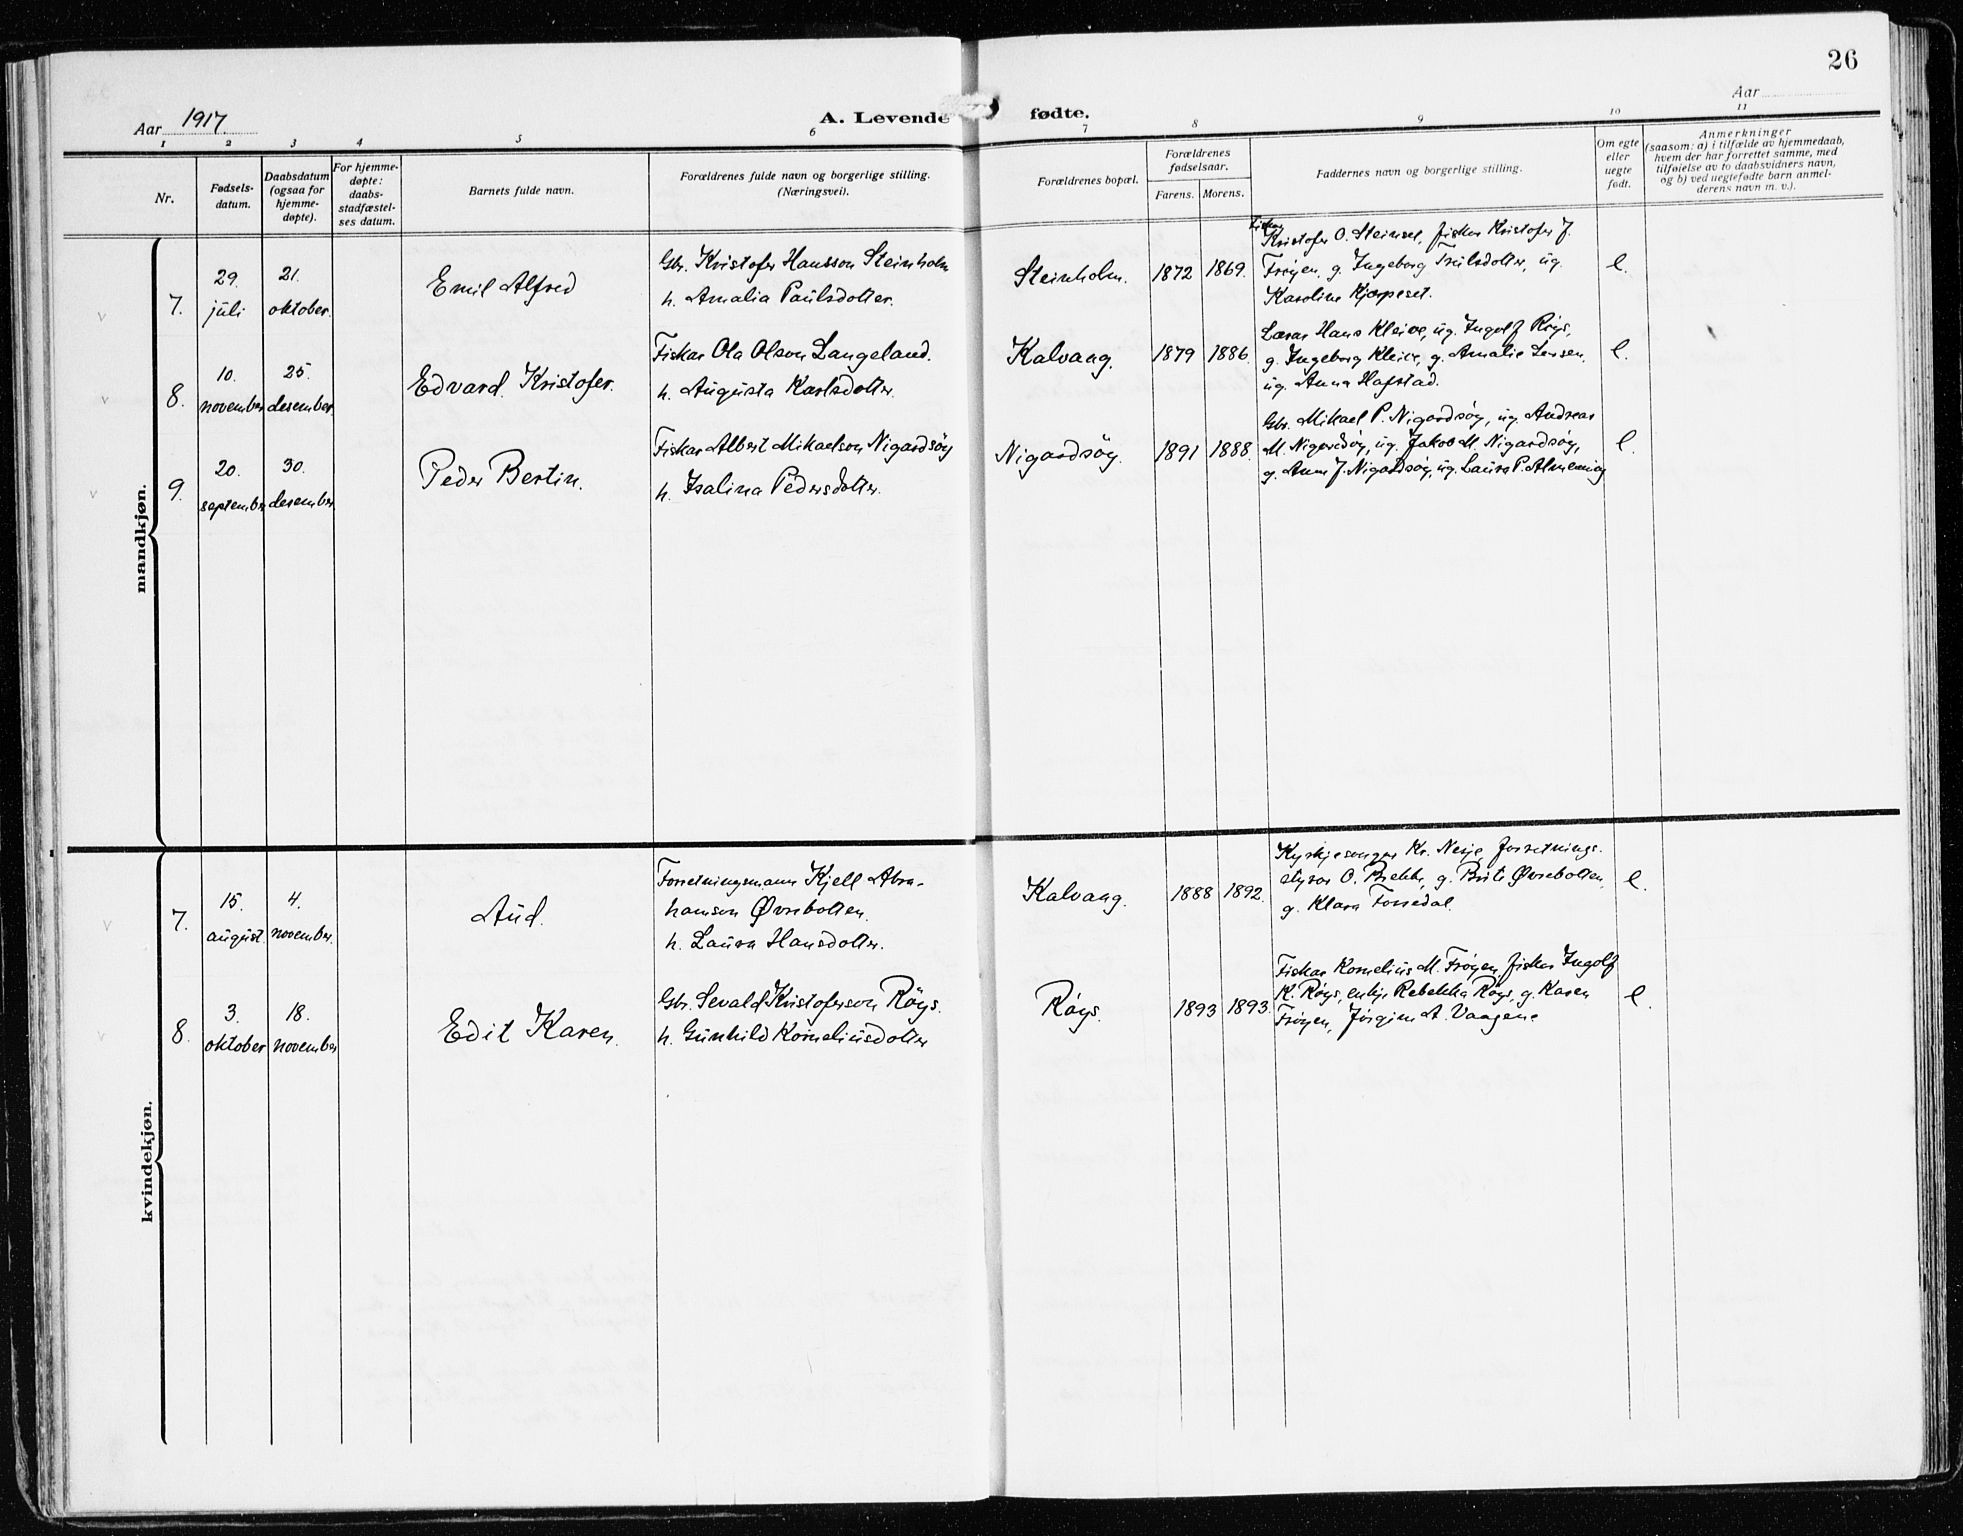 26
Aar 1917.
A. Levende fødte.
Aar
1 2 3 4 5 6 7 8 9 10 11
Nr.
Fødsels-
datum.
Daabsdatum
(ogsaa for
hjemme-
døpte).
For hjemme-
døpte:
daabs-
stadfæstel-
ses datum.
Barnets fulde navn.
Forældrenes fulde navn og borgerlige stilling.
(Næringsvei).
Forældrenes bopæl.
Forældrenes
fødselsaar.
Farens. Morens.
Faddernes navn og borgerlige stilling.
Om egte
eller
uegte
født.
Anmerkninger
(saasom: a) i tilfælde av hjemmedaab,
hvem der har forrettet samme, med
tilføielse av to daabsvidners navn,
og b) ved uegtefødte barn anmel-
derens navn m. v.).
mandkjøn.
7.
29.
juli
21.
oktober.
Emil Alfred
Gbr. Kristofer Hansson Steinholm
h. Amalia Paulsdotter.
Steinholm. 1872 1869.
Fiskar
Kristofer O. Steinset, fiskar Kristofer J.
Frøyen, g. Ingeborg Truls­dotter, ug.
Karoline Kjøpeset.
e.
8.
10.
november
25.
desember
Edvard Kristofer.
Fiskar Ola Olson Langeland.
h. Augusta Karlsdotter.
Kalvaag. 1879 1886.
Lærar Hans Kleive, ug. Ingolf Røys,
g. Ingeborg Kleive, g. Amalie Jensen,
ug. Anna Hafstad.
e.
9.
20.
september
30.
desember
Peder Bertin.
Fiskar Albert Mikaelson Nigardsøy
h. Isalina Pedersdotter.
Nigardsøy. 1891 1888.
Gbr. Mikael P. Nigardsøy, ug. Andreas
M. Nigardsøy, ug. Jakob M. Nigardsøy,
g. Anna J. Nigardsøy, ug. Laura P. Almenning
e.
kvindekjøn.
7.
15.
august.
4.
november.
Aud.
Forretningsmann Kjell Abra-
hamson Øvrebotten.
h. Laura Hansdotter.
Kalvaag. 1888 1892.
Kyrkjesongar Kr. Nesje, forretnings-
styrar O. Brekke, g. Brite Øvrebotten,
g. Klara Forsedal.
e.
8.
3.
oktober
18.
november
Edit Karen.
Gbr. Sevald Kristoferson Røys.
h. Gunhild Korneliusdotter
Røys. 1893 1893.
Fiskar Kornelius M. Frøyen, fiskar Ingolf
K. Røys, enkje Rebekka Røys, g. Karen
Frøyen, Jørgine A. Vaagene
e.